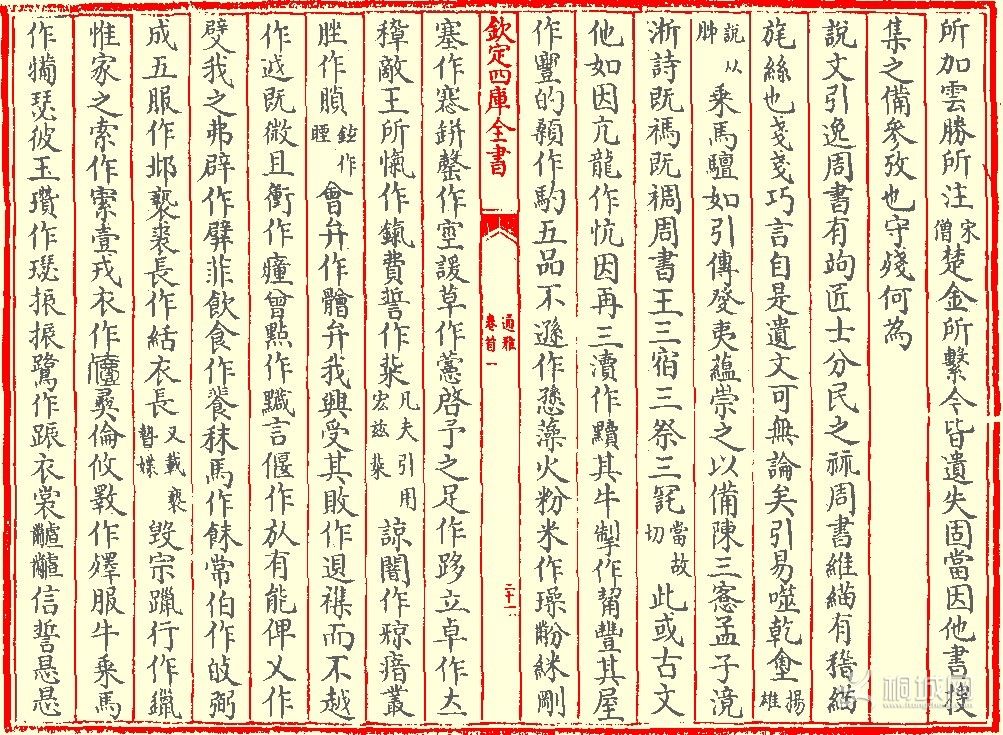 所加雲勝所注宋僧楚金所繫今皆遺失固當因他書搜
集之備參攷也守殘何為
說文引逸周書有竘匠士分民之祘周書維緢有稽緢
旄絲也戔戔巧言自是遺文可無論矣引易噬乾𠧙揚雄
說从胏乘馬驙如引傳癹夷蘊崇之以備陳三愙孟子滰
淅詩既禡既禂周書王三宿三祭三䆪當故切此或古文
他如因亢龍作忼因再三瀆作黷其牛掣作觢豐其屋
作寷的顙作馰五品不遜作愻藻火粉米作璪黺絲剛
欽定四庫全書
通雅
卷首一
二十一
塞作𡫳缾罄作窒諼草作藼啓予之足作跢立卓作𠦝
稺敵王所愾作鎎費誓作粊凡夫引用宏茲粊諒闇作𤸁瘖叢
脞作䐝會弁作䯤弁我興受其敗作退襍而不越
作𨒋既微且衝作瘇曾點作黵言偃作㫃有能俾乂作
嬖我之弗辟作𨐨菲飲食作䬵秣馬作䬴常伯作敀弼
成五服作邶褻裘長作結衣長又載褻暬媟毀宗躐行作躐
惟家之索作索壹戎衣作㡣彝倫攸斁作殬服牛乘馬
作犕瑟彼玉瓚作璱振振鷺作䟴衣裳䵻䵻信誓悬悬